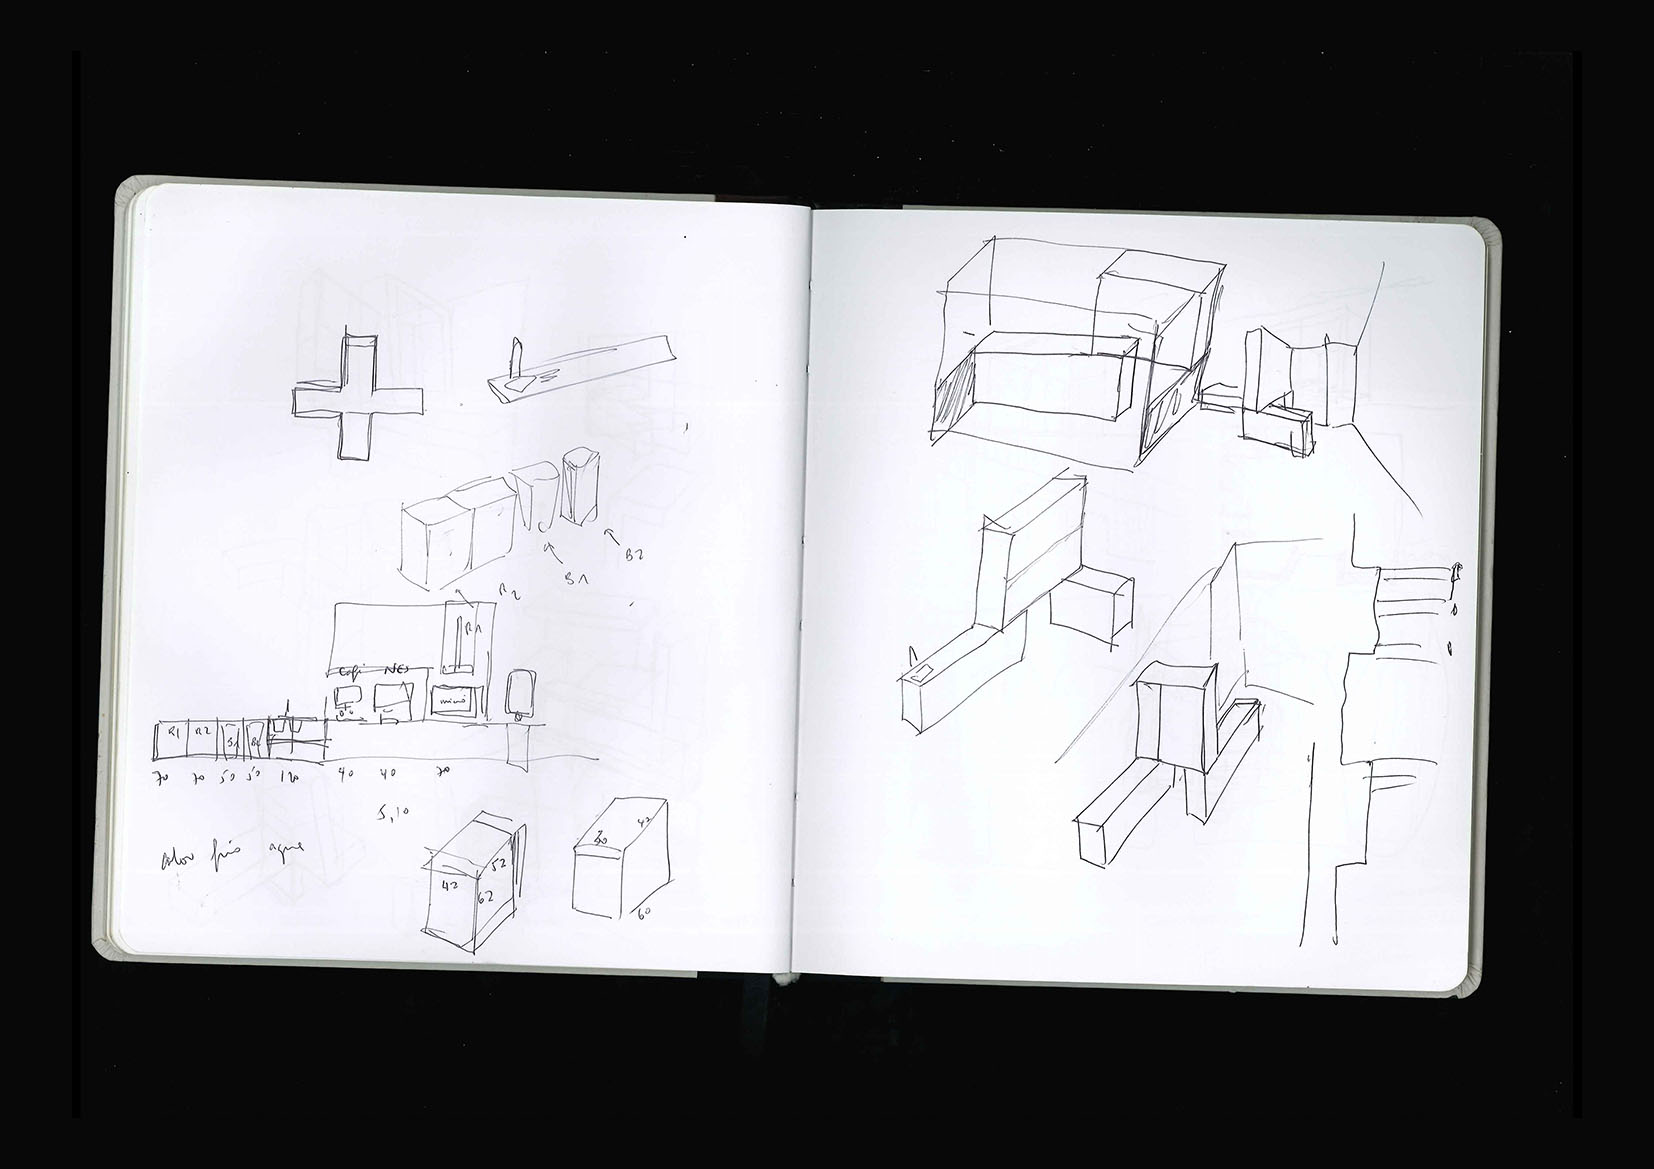 B2
B1
R2
R1
café NES
micro
R1 R2 B1 B2
70 70 50 50 120 40 40 70
5,10
calor frio agua
42 52 62
30 42 60